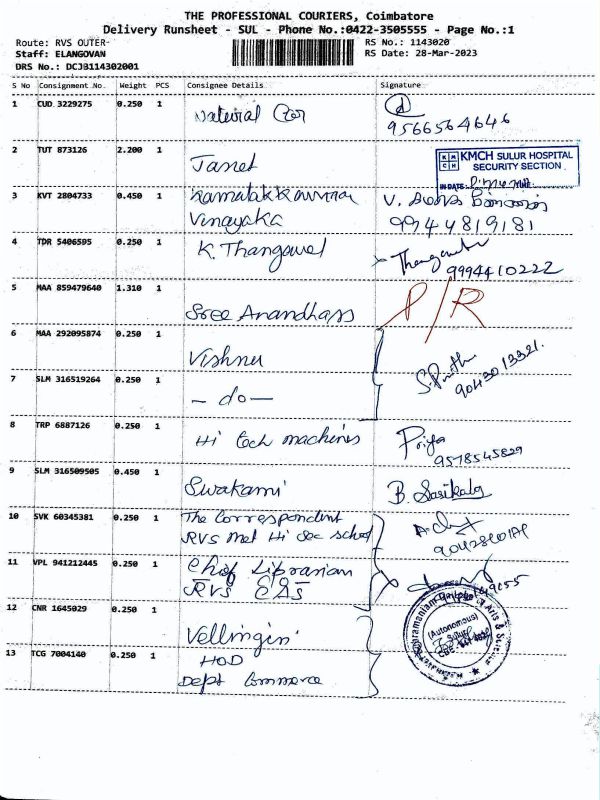 THE PROFESSIONAL COURIERS, Coimbatore
Delivery Runsheet - SUL - Phone No.:0422-3505555 - Page No.:1
Route: RVS OUTER- RS No.: 1143020
Staff: ELANGOVAN RS Date: 28-Mar-2023
DRS No.: DCJB114302001
S No Consignment No. Weight PCS Consignee Details Signature
1 CUD 3229275 0.250 1 Natural
9566564646
2 TUT 873126 2.200 1 Janet
KMCH SULUR HOSPITAL
SECURITY SECTION
IN DATE:
3 KVT 2804733 0.450 1 V.
Vinayaka 9944819181
4 TDR 5406595 0.250 1 K. Thangavel
9994410222
5 MAA 859479640 1.310 1 Sree Anandhass P/R
6 MAA 292095874 0.250 1 Vishnu
9043013321
7 SLM 316519264 0.250 1 - do -
8 TRP 6887126 0.250 1 Hi tech machines Priya
9578545829
9 SLM 316509505 0.450 1 Swakami B. Sasikala
10 SVK 60345381 0.250 1 The Correspondent
RVS Mat Hi Sec School
11 VPL 941212445 0.250 1 Chief Librarian
RVS CAS
12 CNR 1645029 0.250 1 Vellingiri
(Autonomous)
Sulur
13 TCG 7004140 0.250 1 HOD
Dept Commerce